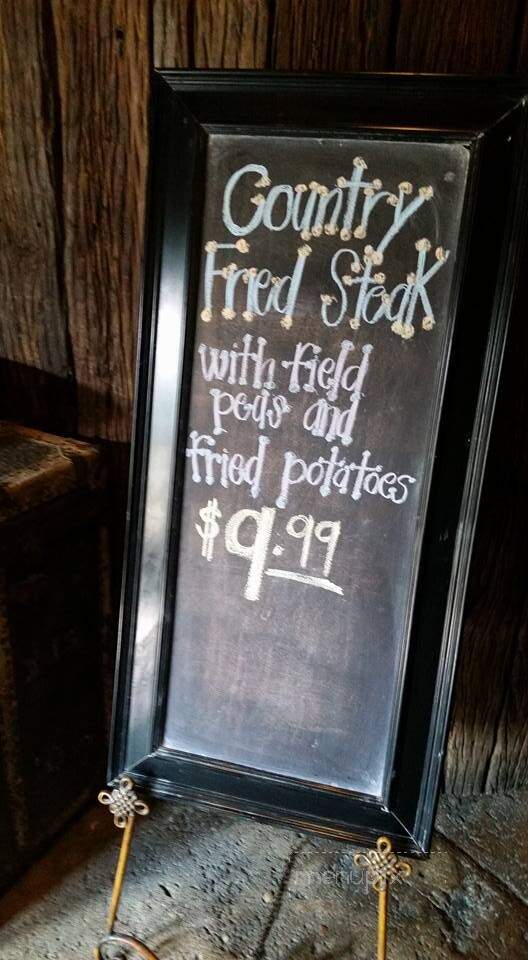 Country
Fried Steak
with field
peas and
fried potatoes
$9.99
menupix